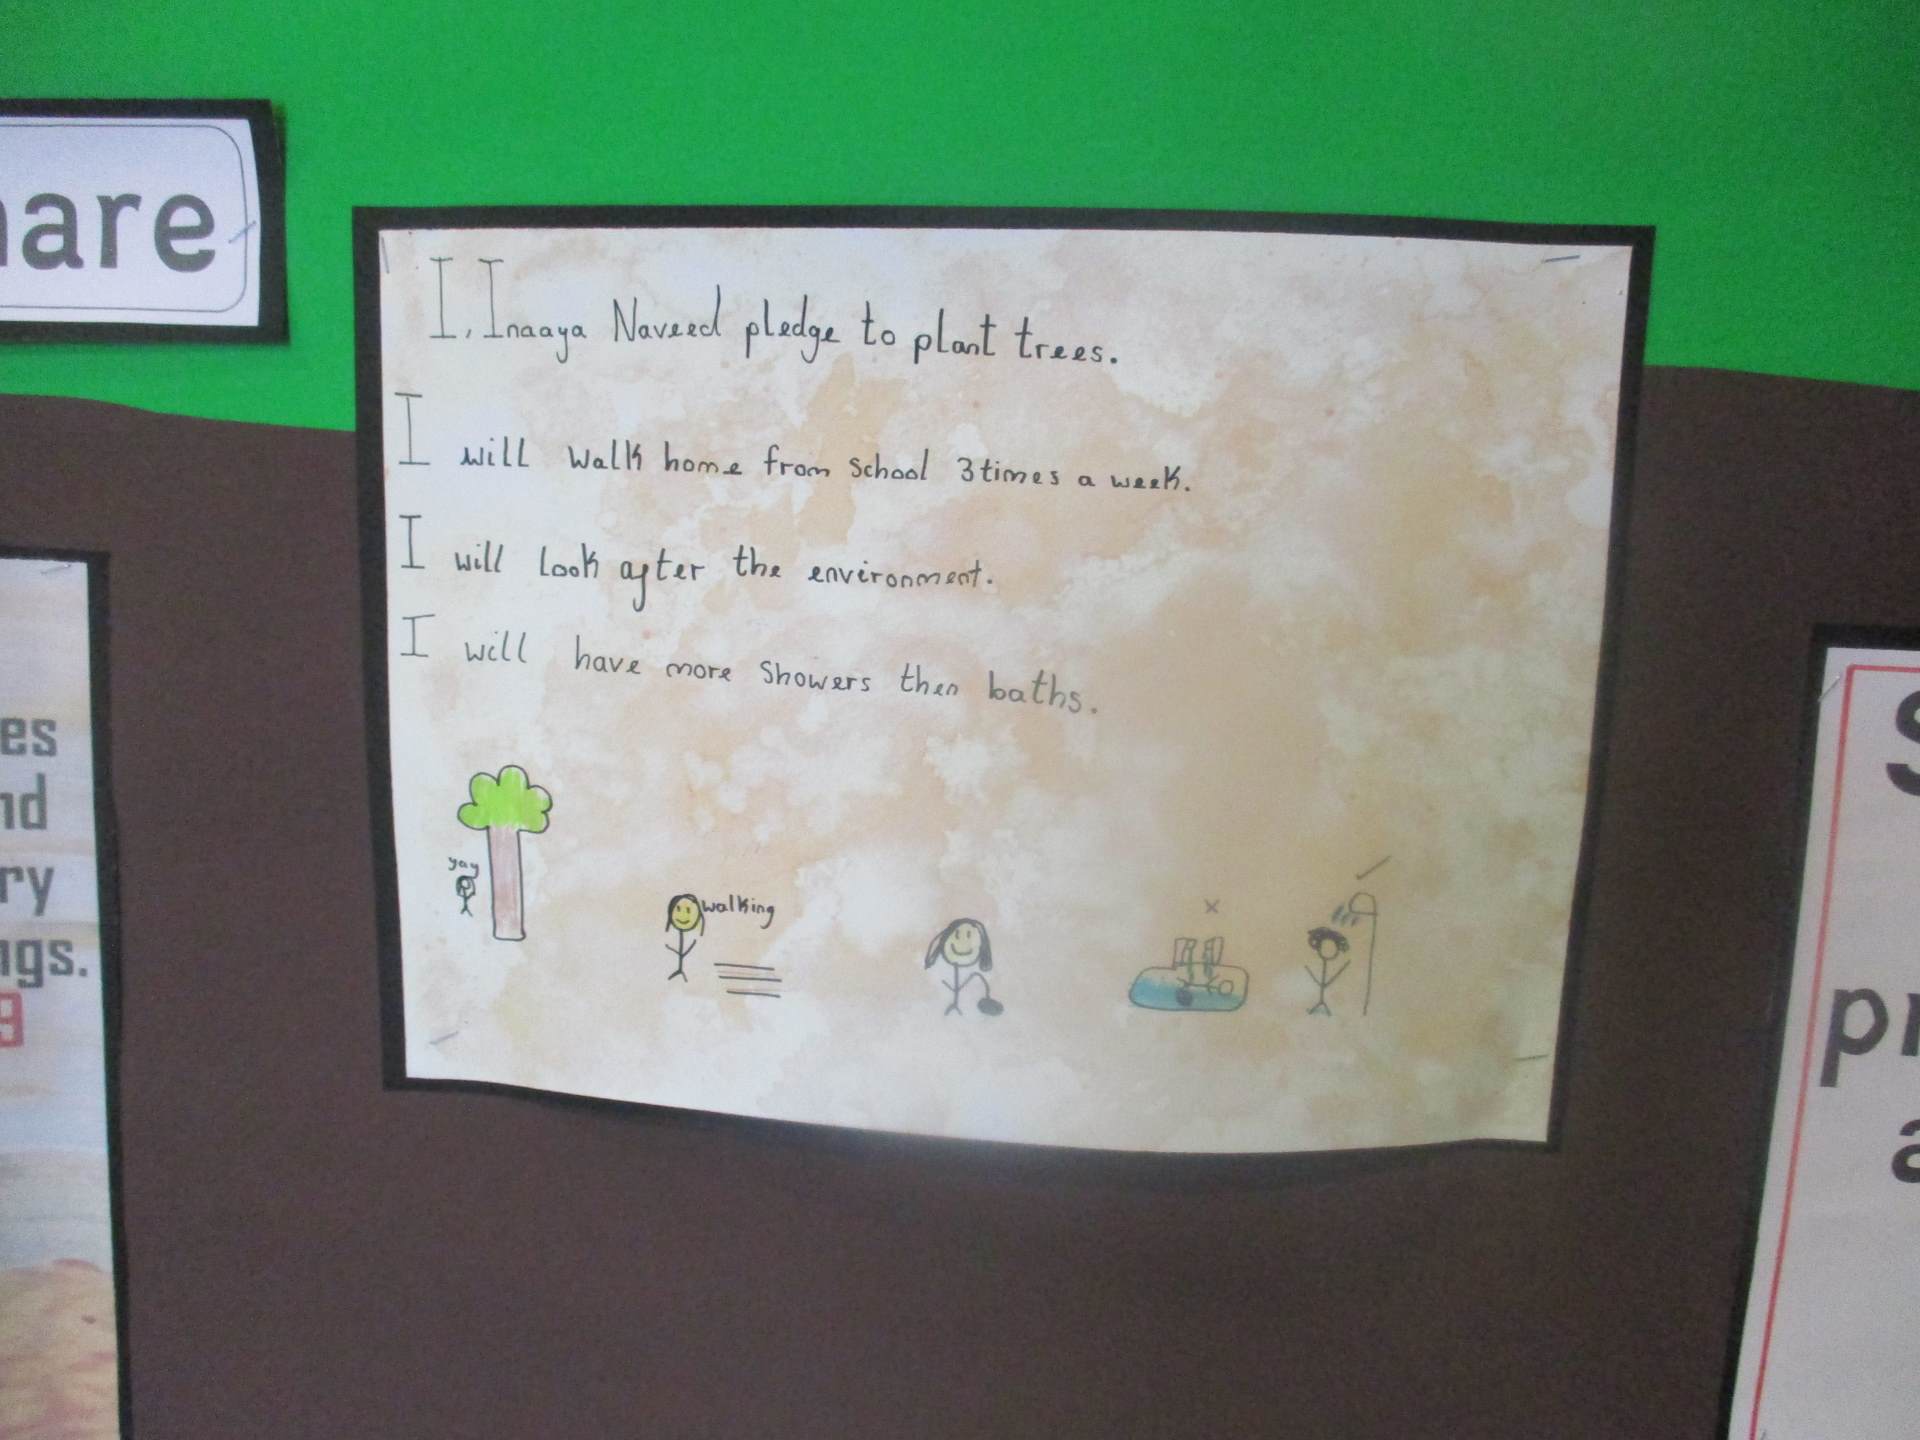 are
I, Inaaya Naveed pledge to plant trees.
I will walk home from school 3 times a week.
I will look after the environment.
I will have more showers then baths.
yay
walking
es
nd
ry
ngs.
9
S
pr
a